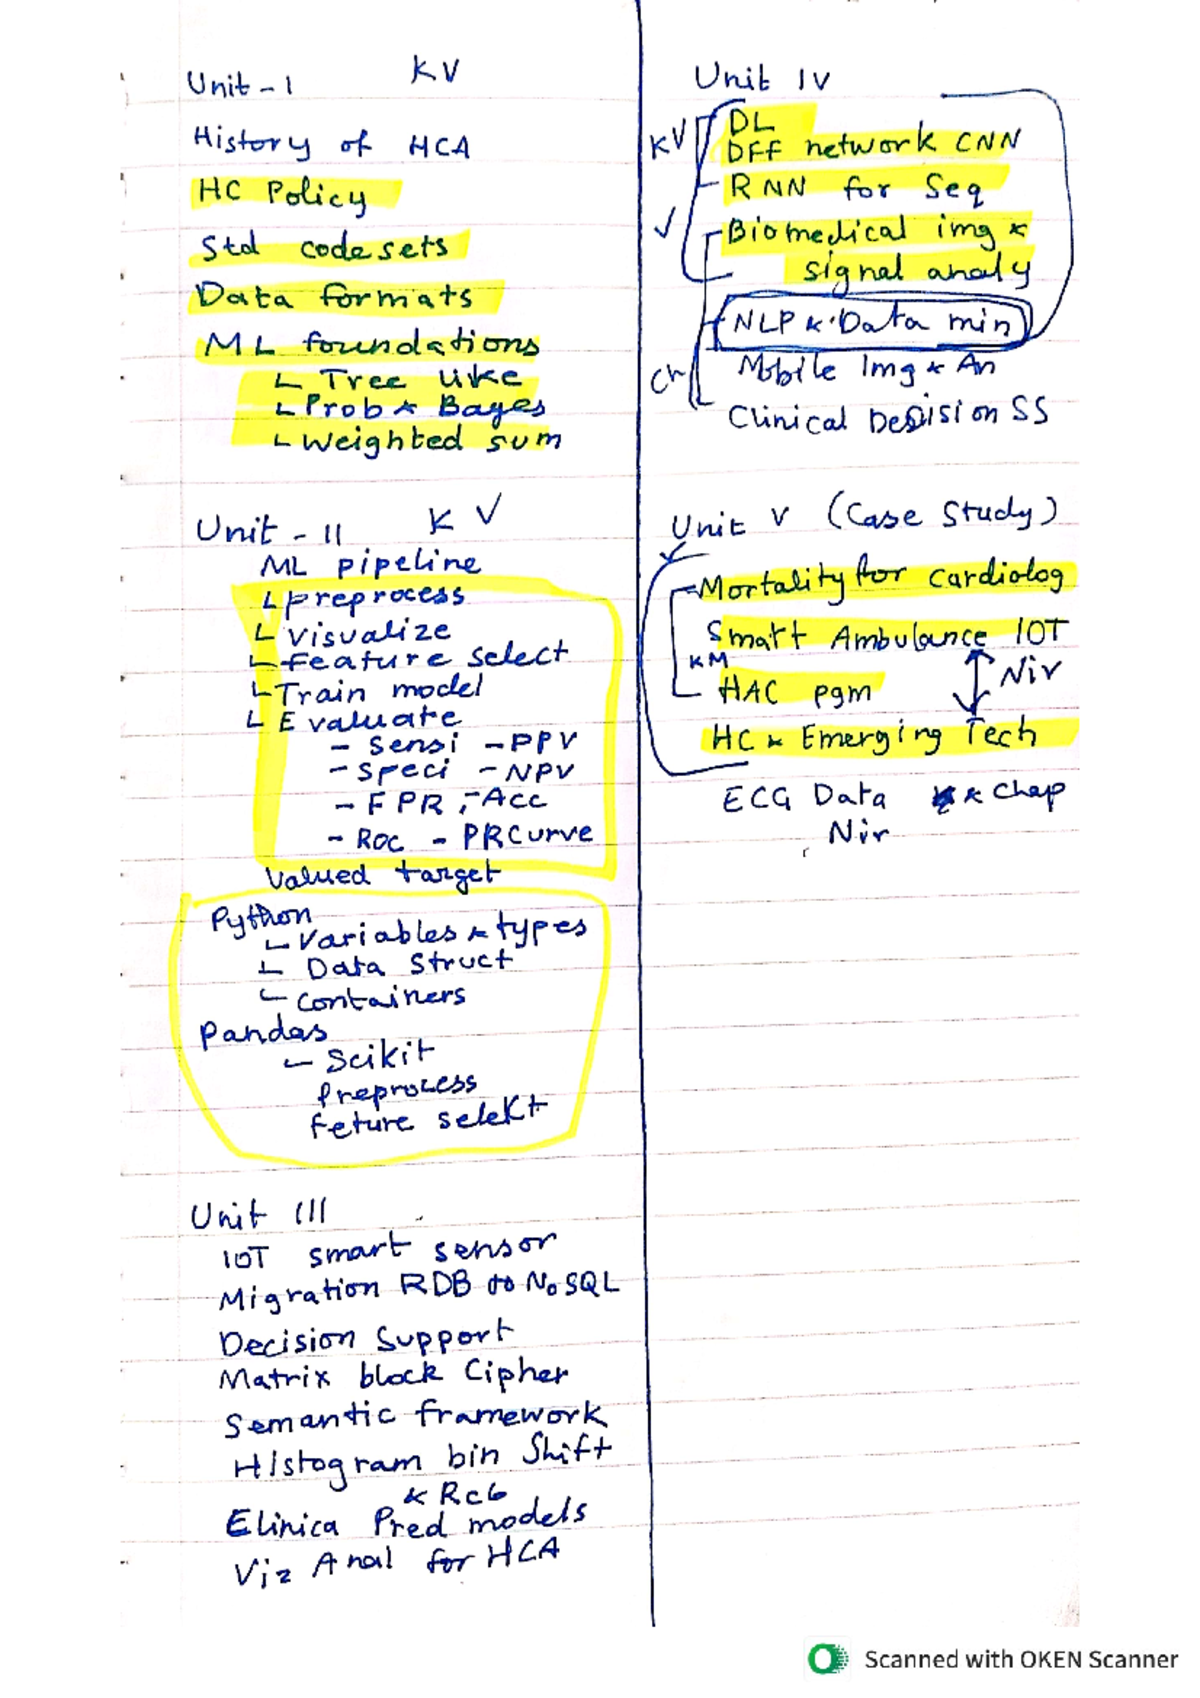 Unit - I KV
History of HCA
HC Policy
Std codesets
Data formats
ML foundations
Tree like
Prob & Bayes
Weighted sum
Unit - II KV
ML pipeline
Preprocess
Visualize
feature select
Train model
Evaluate
- Sensi - PPV
- Speci - NPV
- FPR, - Acc
- ROC - PRCurve
Valued target
Python
Variables & types
Data Struct
Containers
Pandas
Scikit
Preprocess
feture selekt
Unit III
IOT smart sensor
Migration RDB to NoSQL
Decision Support
Matrix block Cipher
Semantic framework
Histogram bin Shift
& RC6
Elinica Pred models
Viz Anal for HCA
Unit IV
KV
DL
DFF network CNN
RNN for Seq
Biomedical img &
signal analy
NLP & Data min
Ch
Mobile Img & An
Clinical Decision SS
Unit V (Case Study)
Mortality for Cardiolog
Smart Ambulance IOT
KM
Nir
HAC pgm
HC & Emerging Tech
ECG Data & Chap
Nir
Scanned with OKEN Scanner